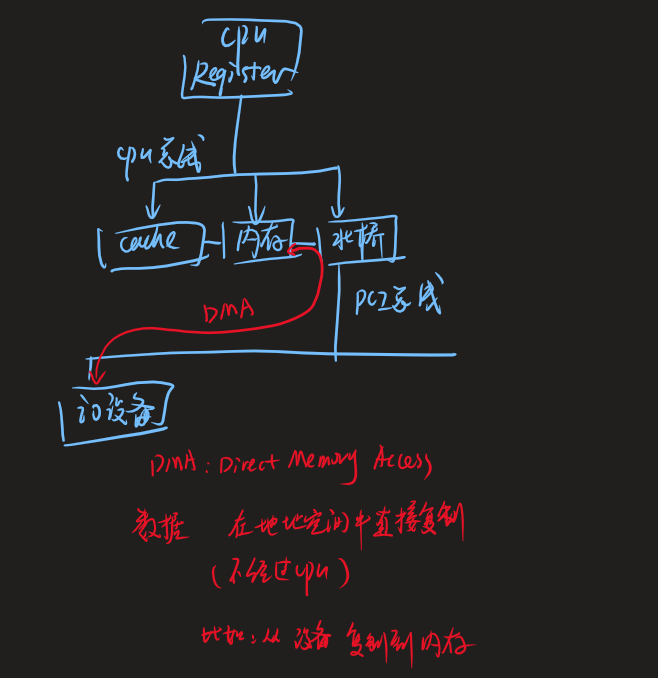 CPU
Register
cpu总线
cache
内存
北桥
DMA
PCI总线
IO设备
DMA:Direct Memory Access
数据 在地址空间中直接复制
(不经过cpu)
比如:从设备复制到内存